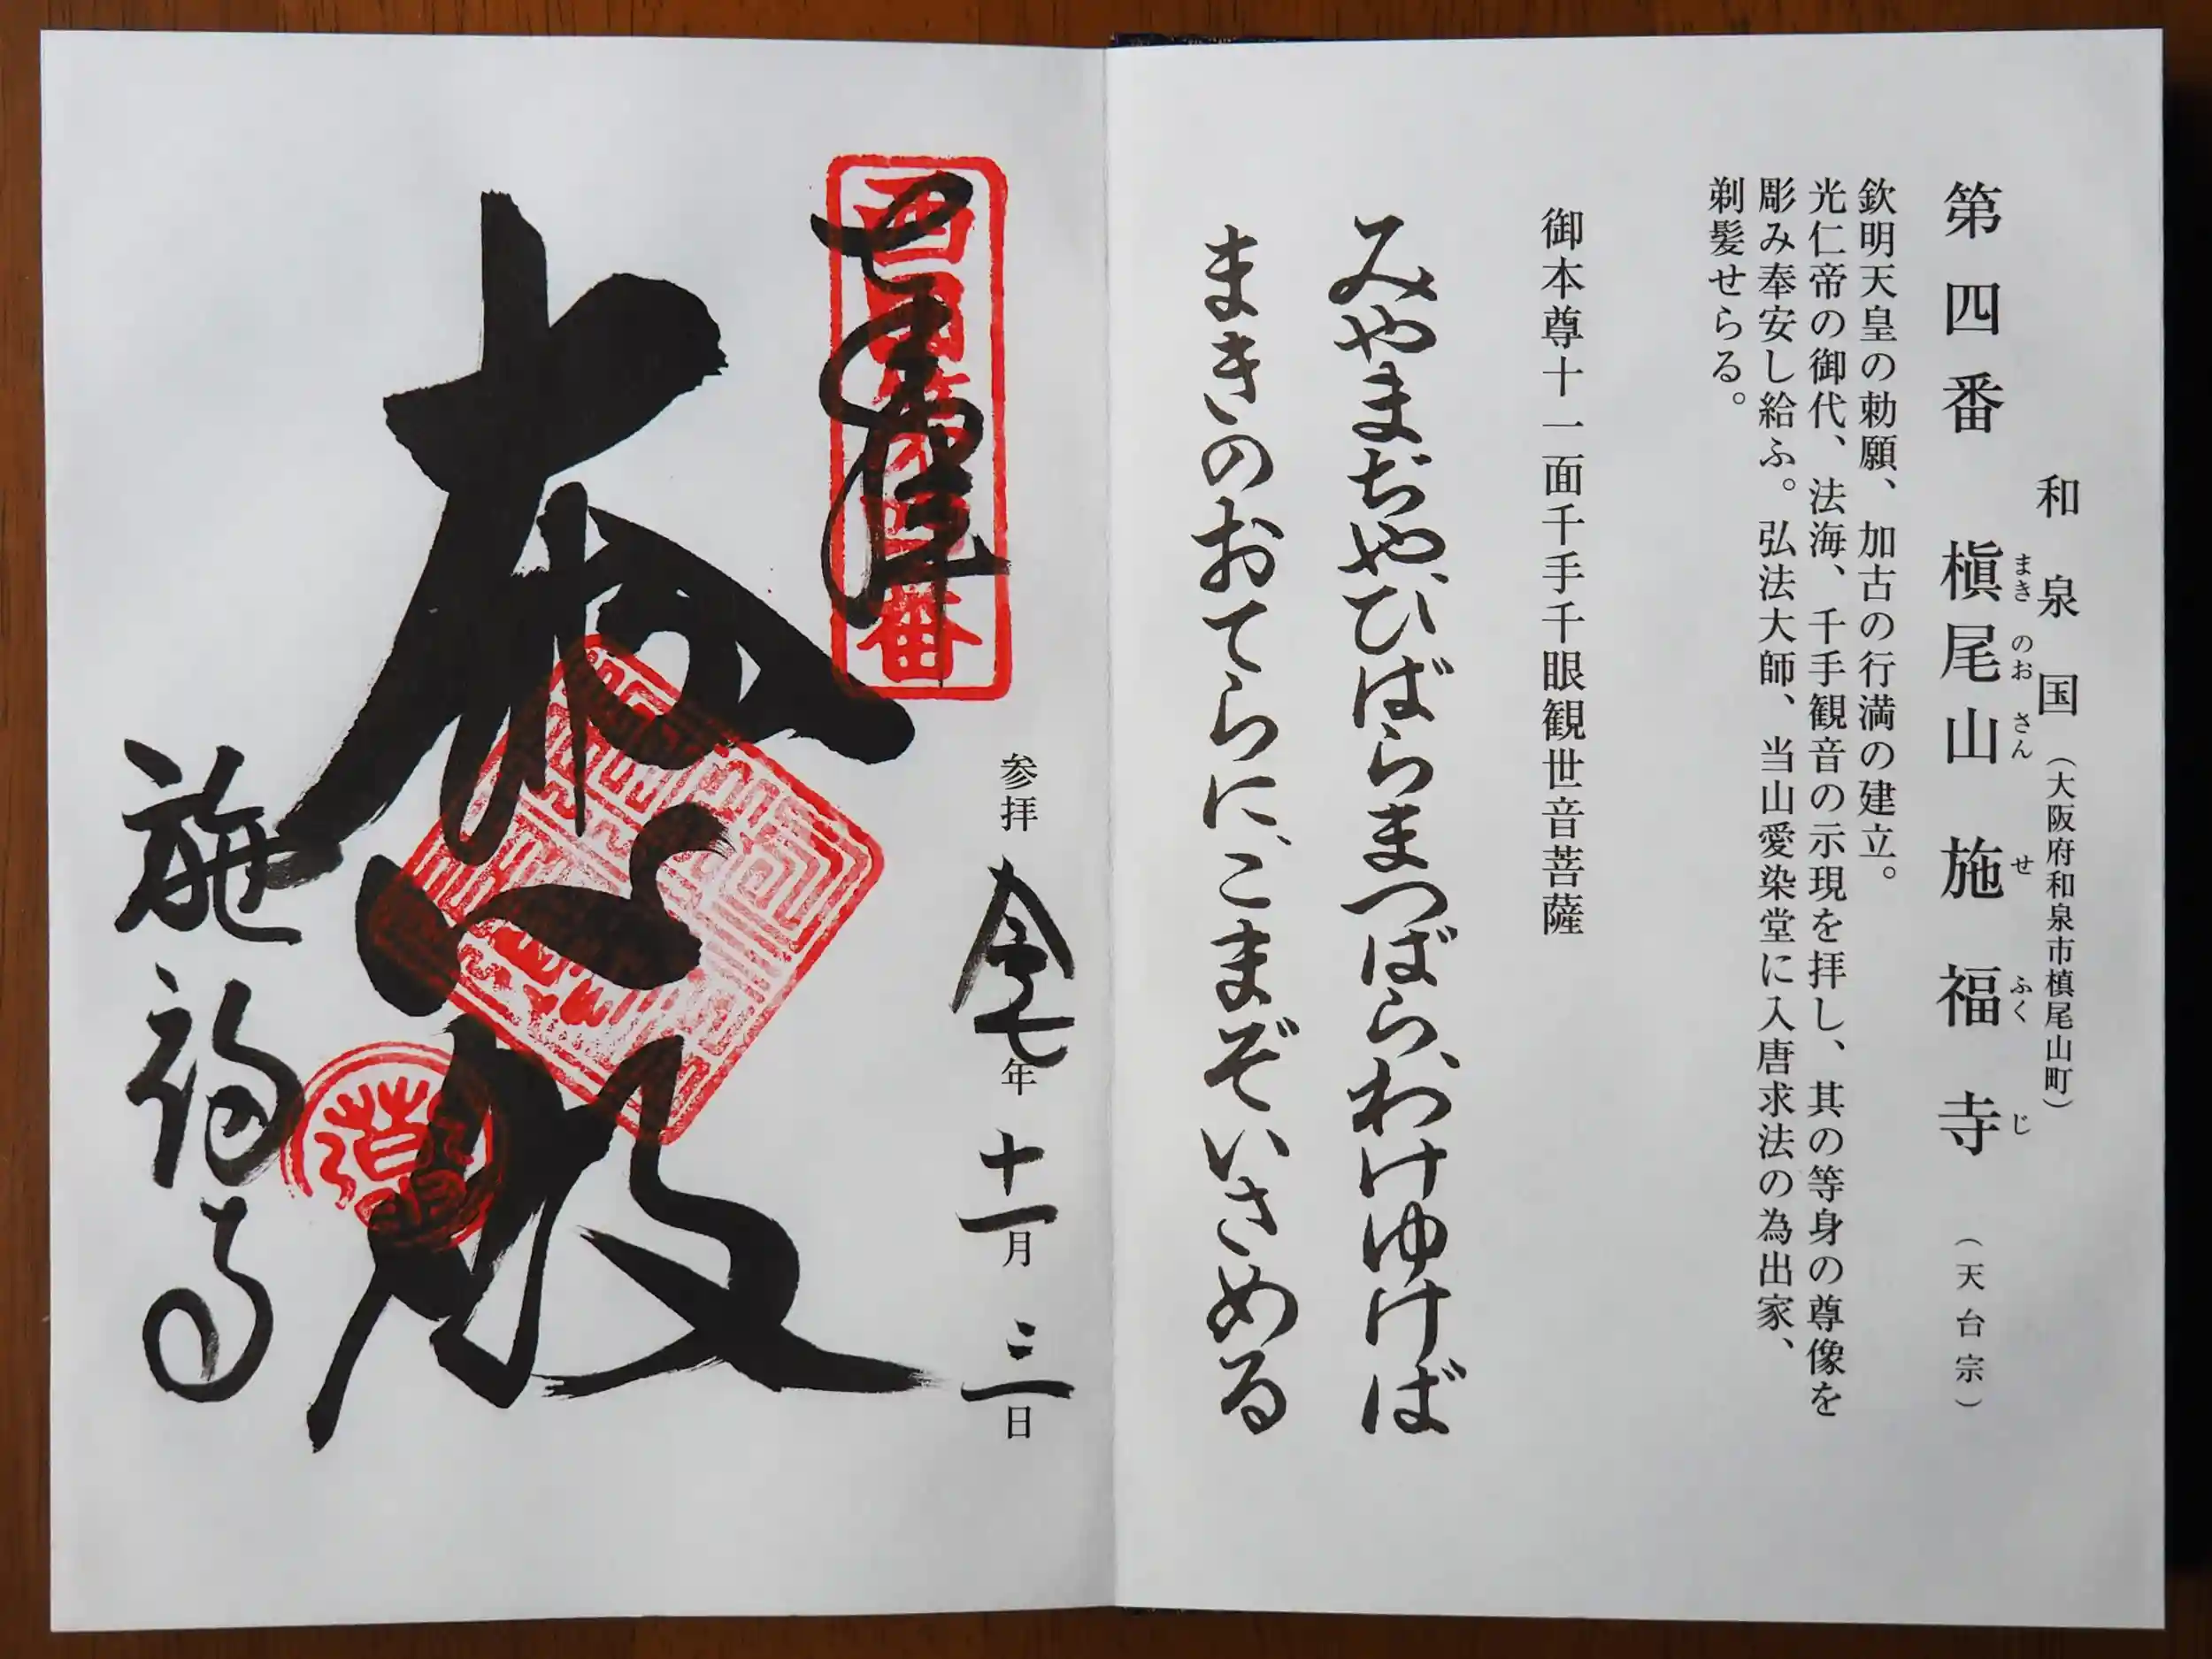 和泉国（大阪府和泉市槙尾山町）
第四番 槇尾山 施福寺（天台宗）
まき のお さん せ ふく じ
欽明天皇の勅願、加古の行満の建立。
光仁帝の御代、法海、千手観音の示現を拝し、其の等身の尊像を
彫み奉安し給ふ。弘法大師、当山愛染堂に入唐求法の為出家、
剃髪せらる。
御本尊十一面千手千眼観世音菩薩
みやまぢや、ひばらまつばら、わけゆけば
まきのおてらに、こまぞいさめる
参拝 令七年 十一月 三日
西国第四番
大悲殿
施福寺